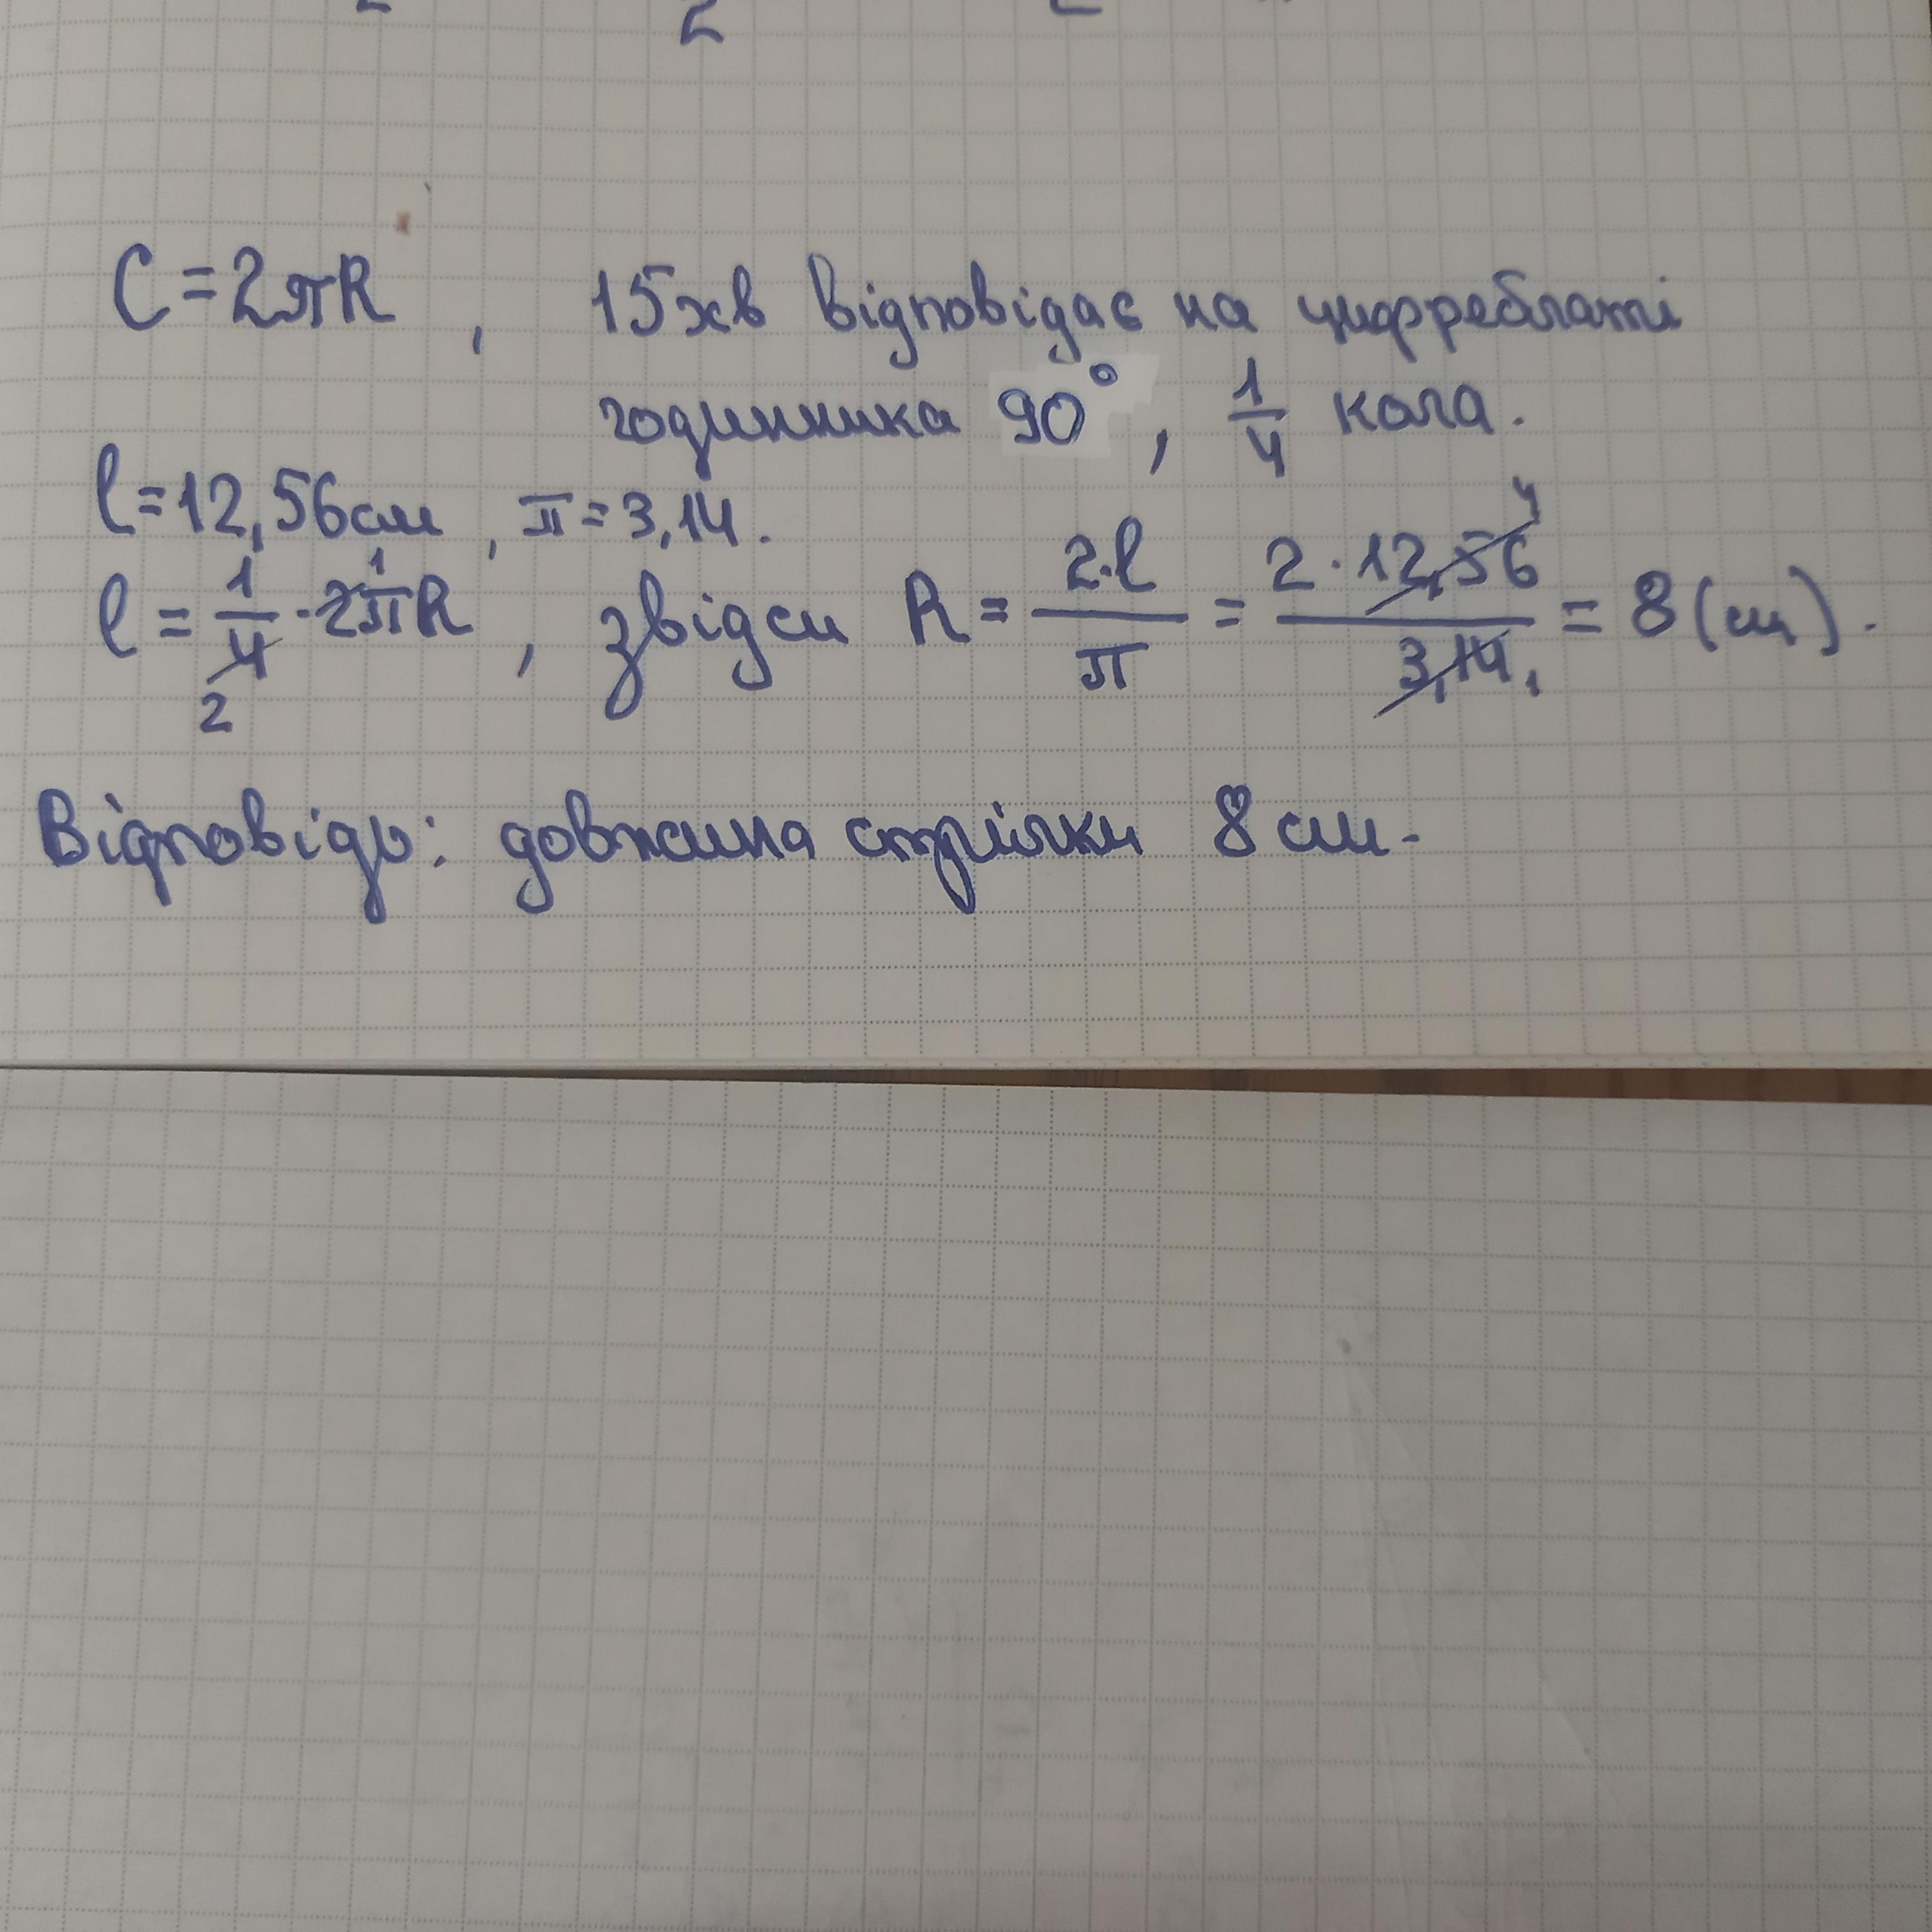 C = 2πR , 15хв відповідає на циферблаті
годинника 90° , 1/4 кола.
l = 12,56см , π = 3,14.
l = 1/4 · 2πR , звідси R = 2·l/π = 2 · 12,56/3,14 = 8 (см).
Відповідь: довжина стрілки 8 см.